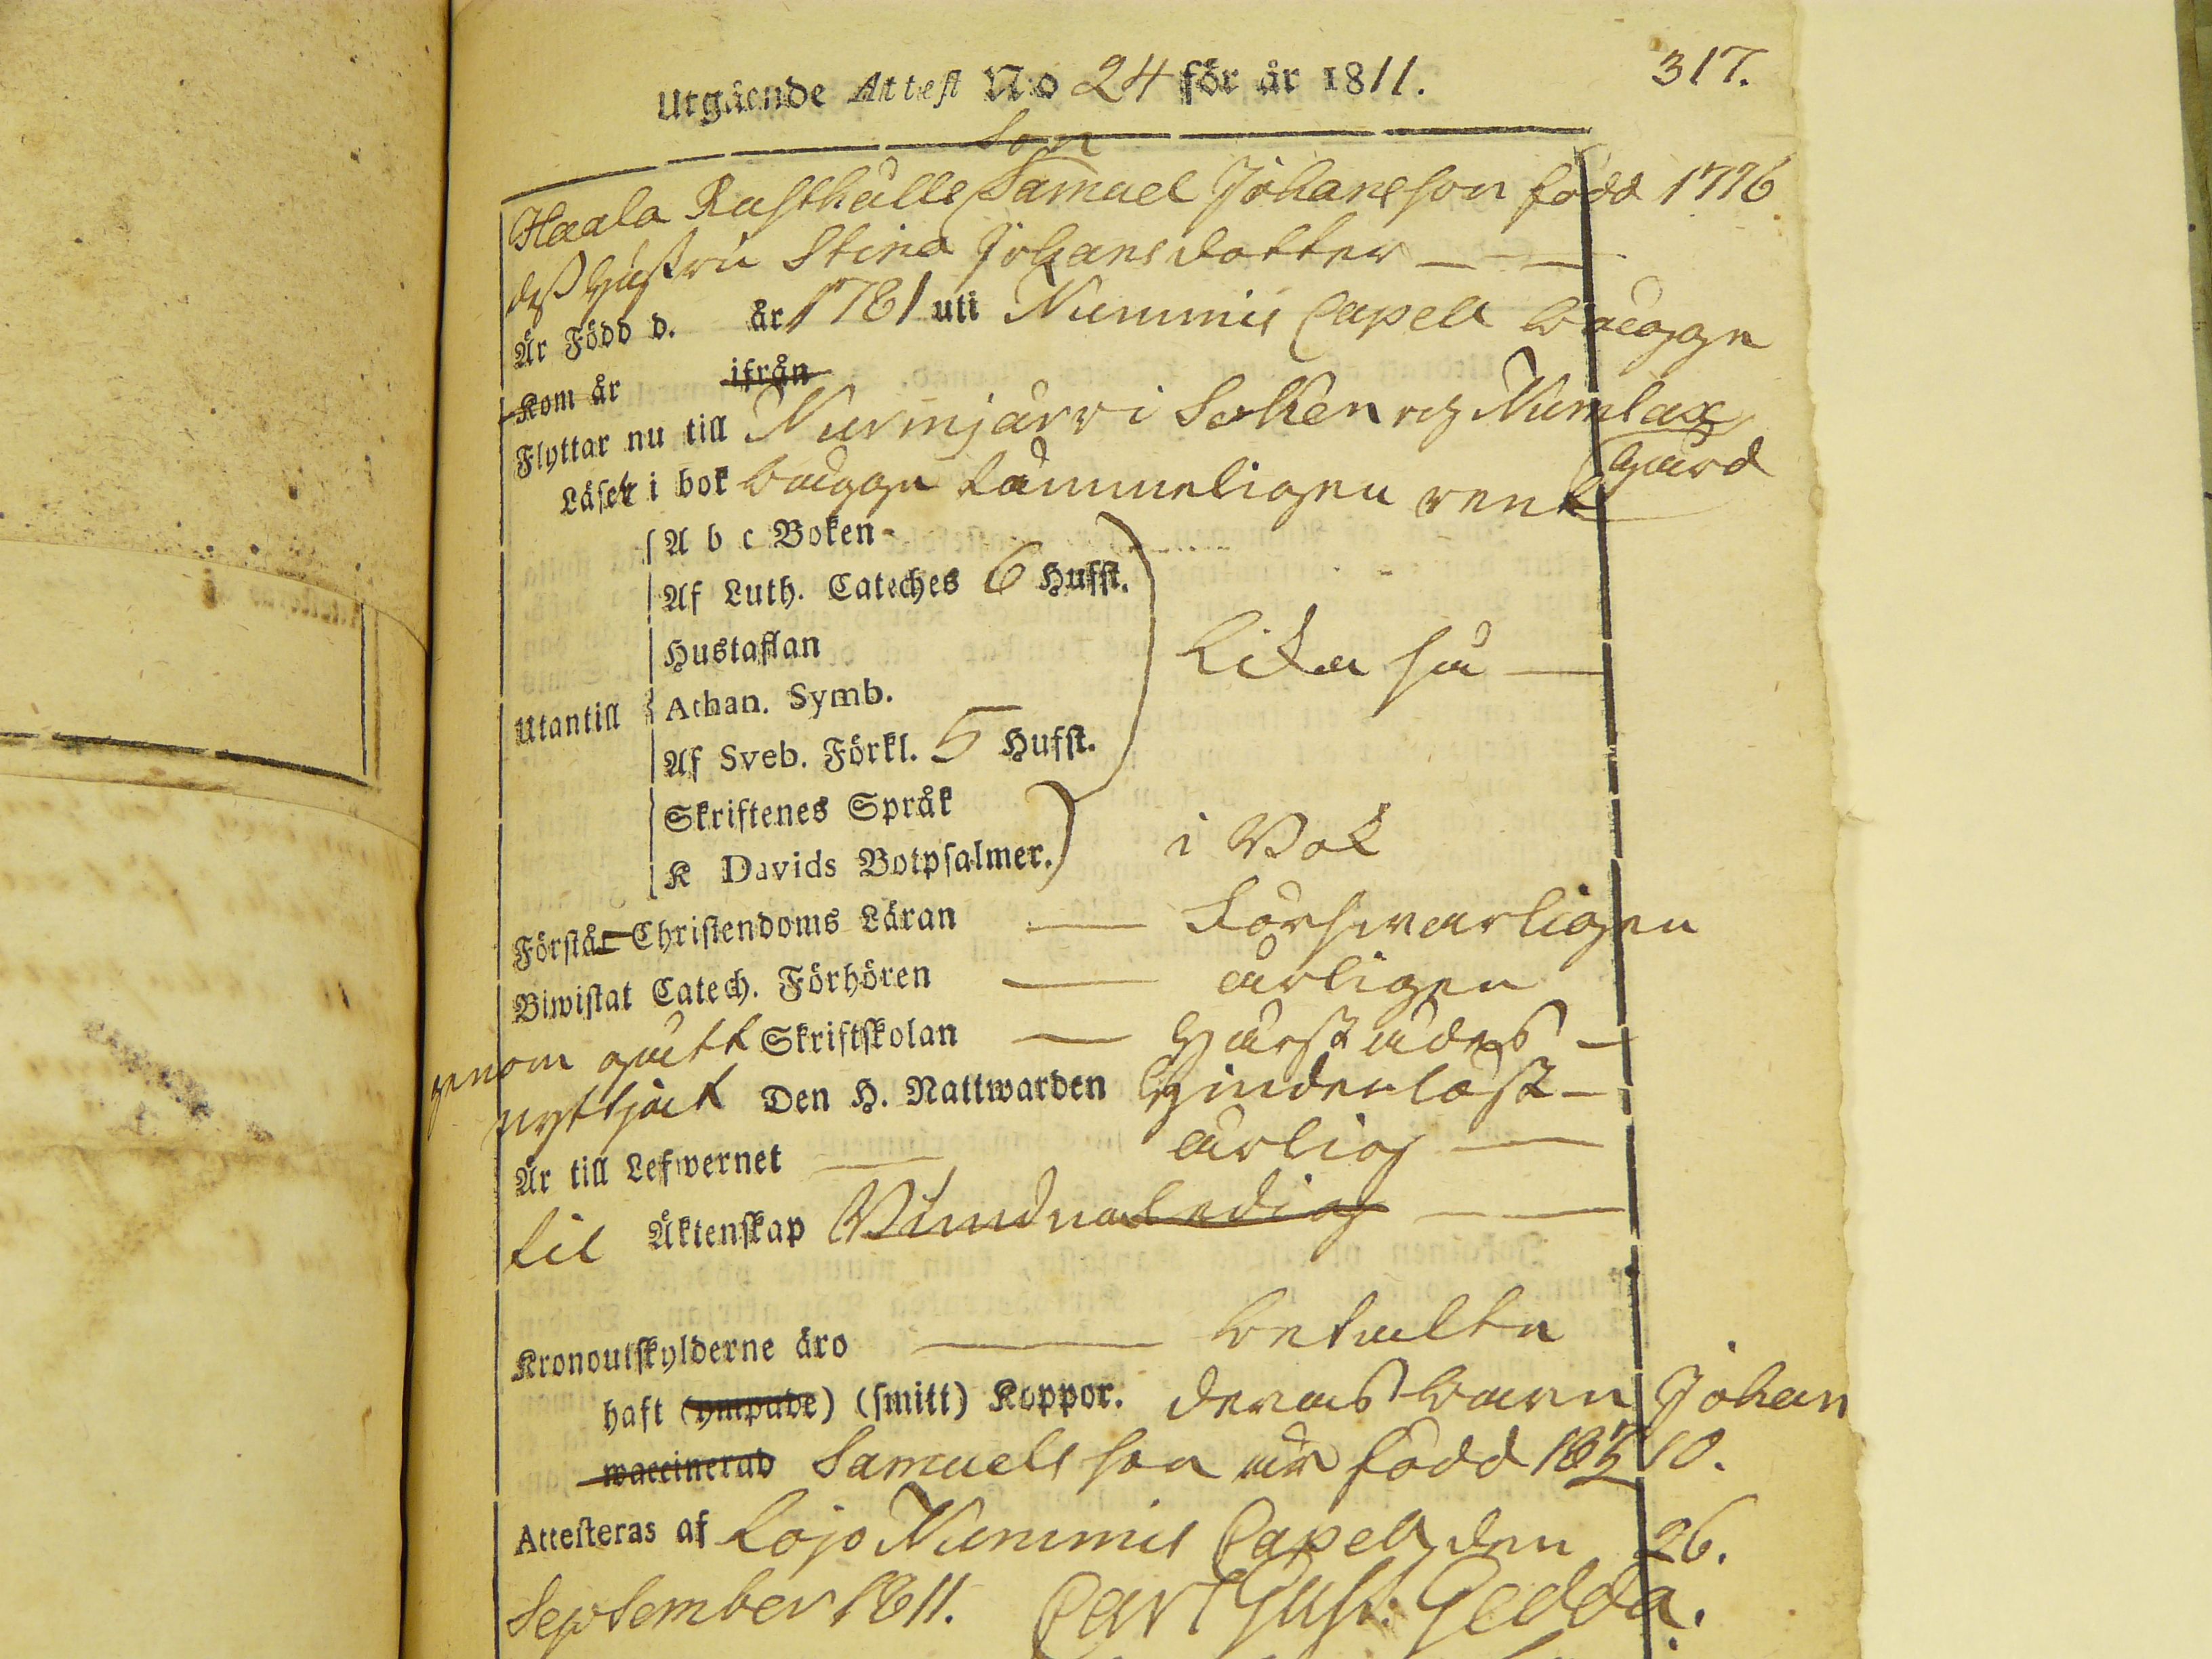 317.
Utgående Attest No 24 för år 1811.
Son
Haala Rusthålls Samuel Johansson född 1776
dess hustru Stina Johansdotter
Är Född d. år 1781 uti Nummis Capell bägge
Kom år ifrån
Flyttar nu till Nurmijärvi Soken och Numlax
gård
Läser i bok bägge tämmeligen rent
A b c Boken
Af Luth. Cateches 6 Hufst.
Hustaflan
Lika så
Utantill
Athan. Symb.
Af Sveb. Förkl. 5 Hufst.
Skriftenes Språk
K Davids Botpsalmer.
i Bok
Förstår Christendoms Läran försvarligen
Biwistat Catech. Förhören årligen
genom gått Skriftskolan härstädes
nyttjat Den H. Nattwarden hinderlöst
Är till Lefwernet ärlig
til Äktenskap ledig
Kronoutskylderne äro betalte
haft (ympade) (smitt) Koppor. deras barn Johan
waccinerad Samuelsson är född 18 10.
Attesteras af Lojo Nummis Capell den 26.
September 1811. Carl Gust. Gedda.